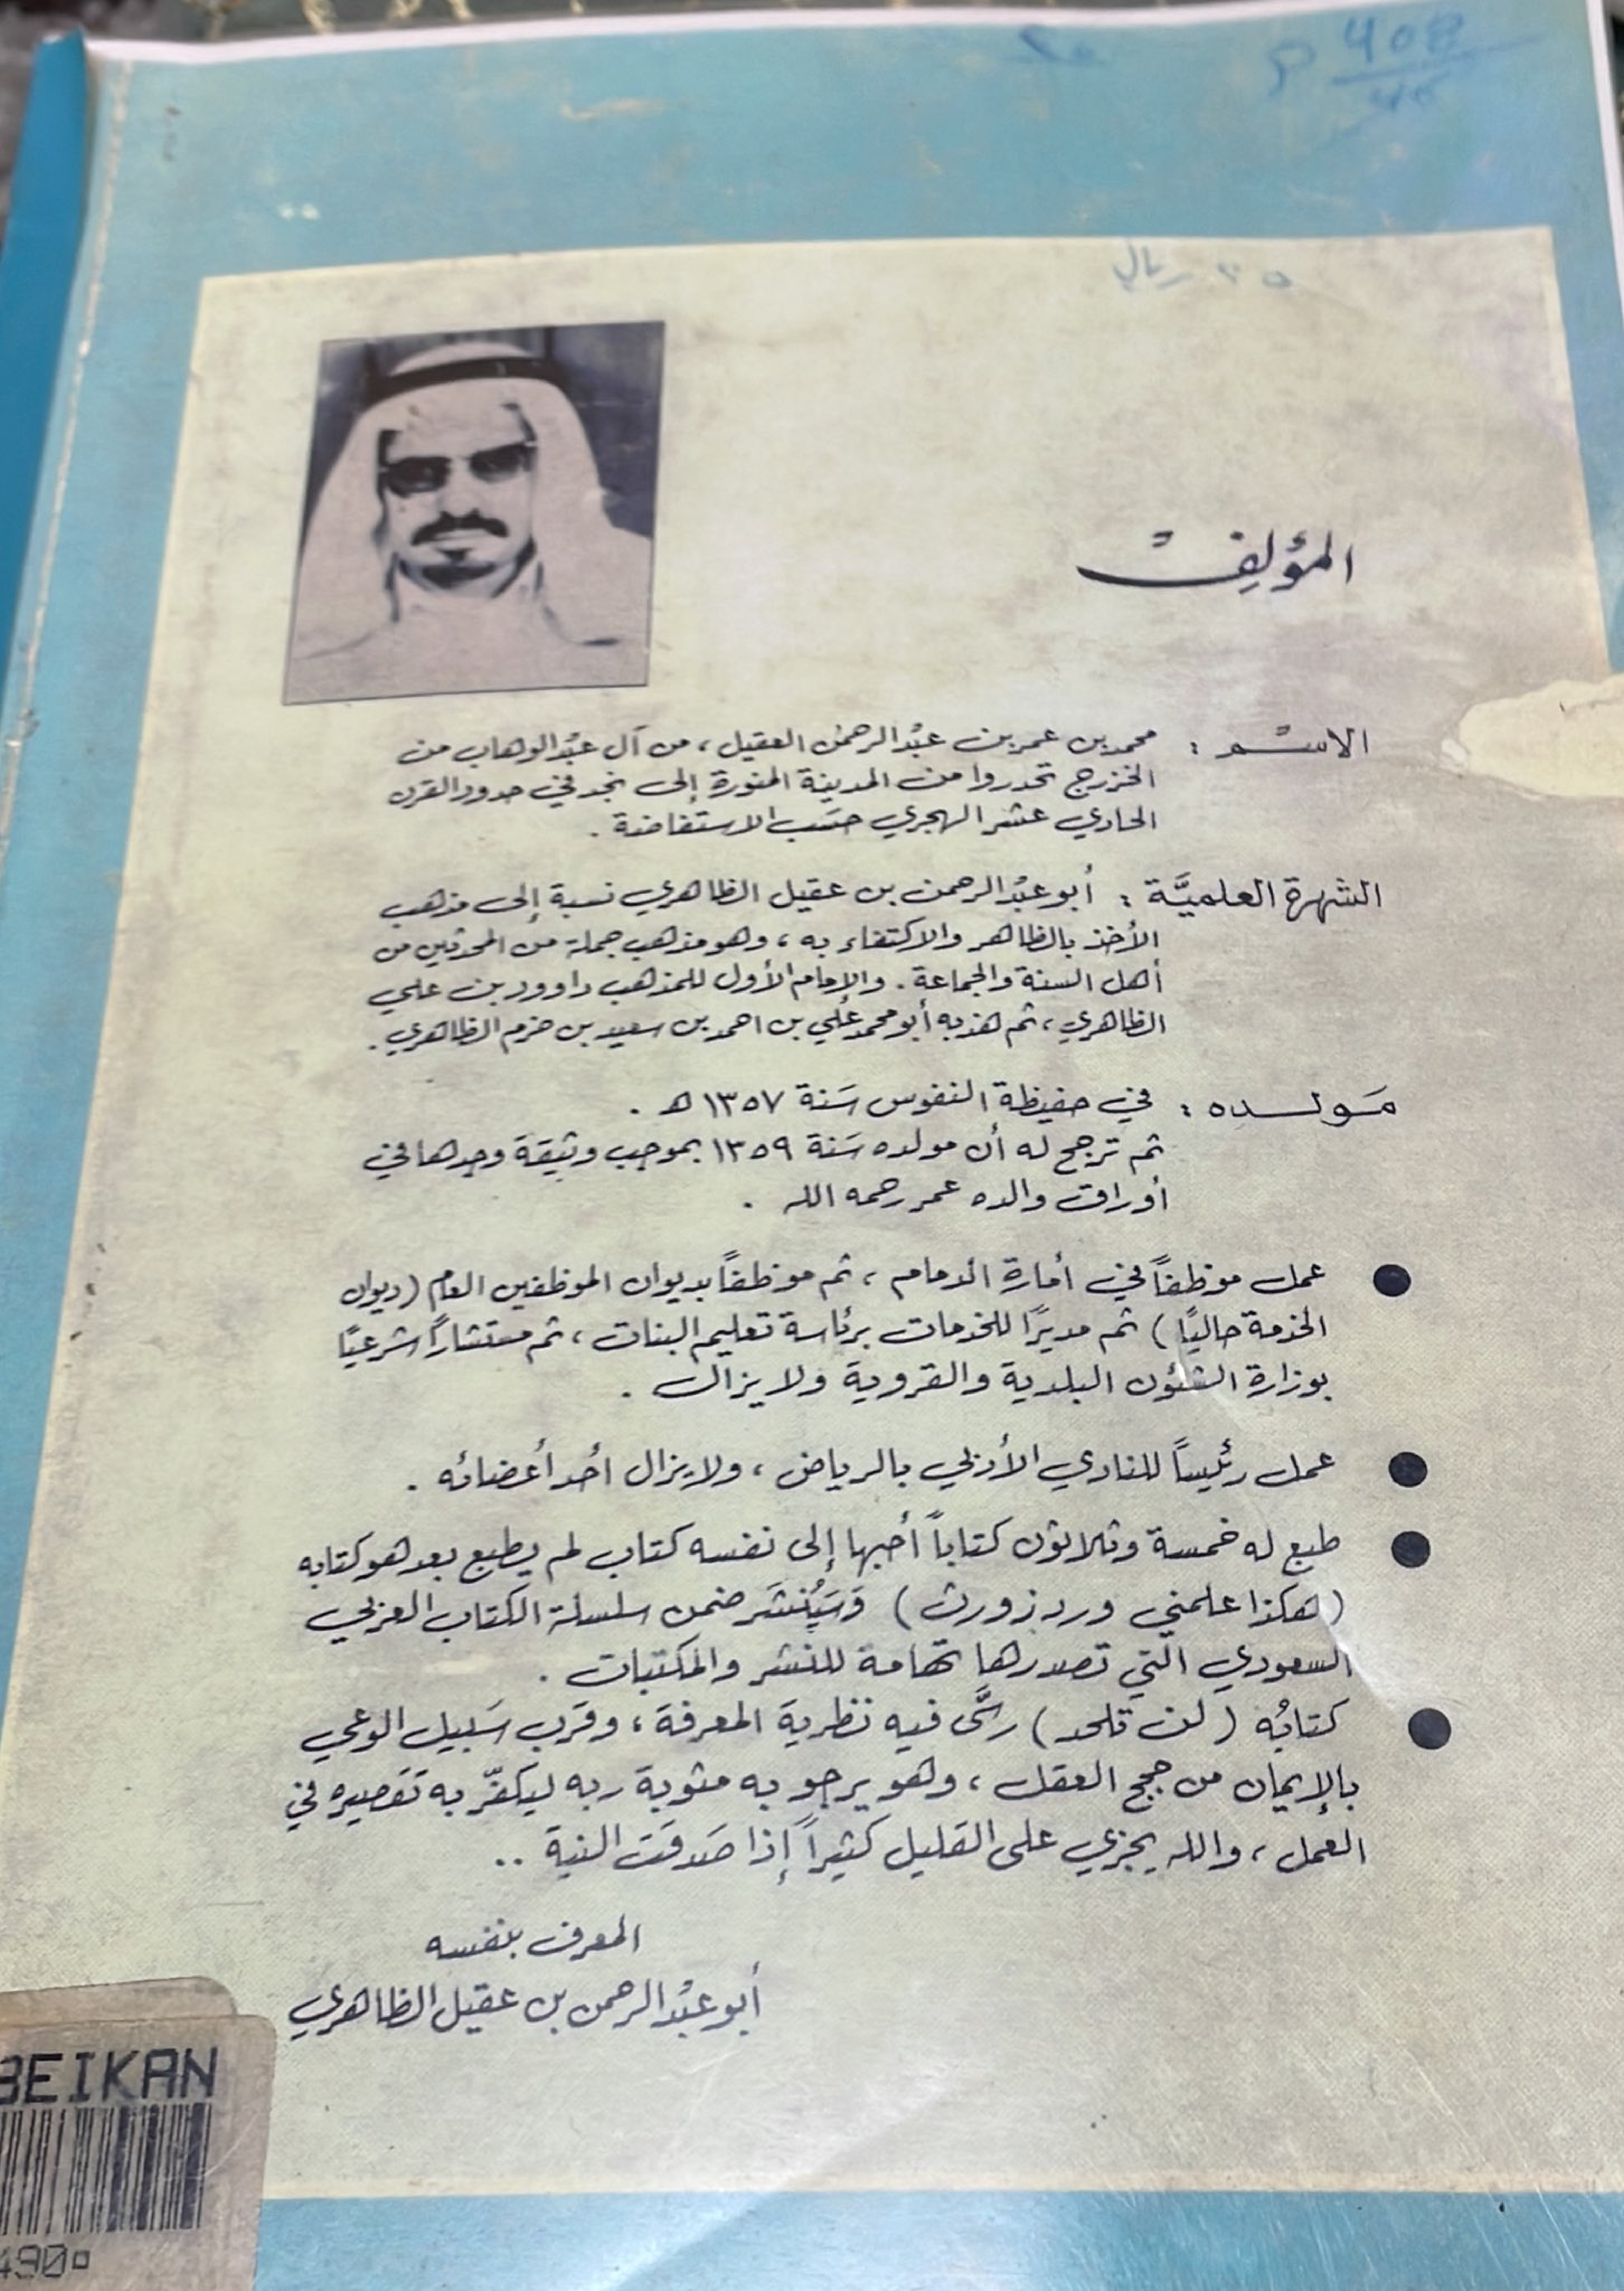 408
٢٥ ريال
المؤلف
الاسم : محمد بن عمر بن عبد الرحمن العقيل ، من آل عبد الوهاب من
الخزرج تحدروا من المدينة المنورة إلى نجد في حدود القرن
الحادي عشر الهجري حسب الاستفاضة .
الشهرة العلميَّة : أبو عبد الرحمن بن عقيل الظاهري نسبة إلى مذهب
الأخذ بالظاهر والاكتفاء به ، وهو مذهب جملة من المحدثين من
أهل السنة والجماعة . والإمام الأول للمذهب داوود بن علي
الظاهري ، ثم هذبه أبو محمد علي بن احمد بن سعيد بن حزم الظاهري .
مَولده : في حفيظة النفوس سَنة ١٣٥٧ هـ .
ثم ترجح له أن مولده سَنة ١٣٥٩ بموجب وثيقة وجدها في
أوراق والده عمر رحمه الله .
● عمل موظفاً في أمارة الدمام ، ثم موظفاً بديوان الموظفين العام (ديوان
الخدمة حاليًا ) ثم مديرًا للخدمات برئاسة تعليم البنات ، ثم مستشاراً شرعيًا
بوزارة الشئون البلدية والقروية ولا يزال .
● عمل رئيساً للنادي الأدبي بالرياض ، ولا يزال أحد أعضائه .
● طبع له خمسة وثلاثون كتاباً أحبها إلى نفسه كتاب لم يطبع بعد هو كتابه
( هكذا علمني وردزورث ) وَسَيُنشَر ضمن سلسلة الكتاب العربي
السعودي التي تصدرها تهامة للنشر والمكتبات .
● كتابُه ( لن تلحد ) رسَّى فيه نظرية المعرفة ، وقرب سَبيل الوعي
بالإيمان من حجج العقل ، وهو يرجو به مثوبة ربه ليكفّر به تقصيره في
العمل ، والله يجزي على القليل كثيراً إذا صَدقت النية ..
المعرف بنفسه
أبو عبد الرحمن بن عقيل الظاهري
BEIKAN